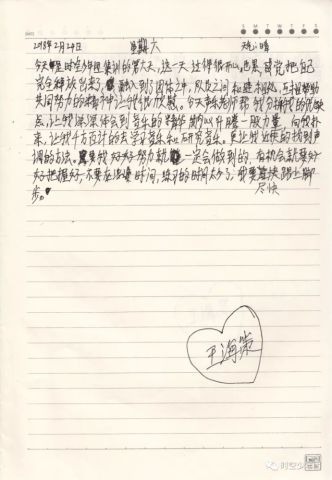 2018年2月24日 星期六 天气:晴
今天是时空少年团集训的第六天,这一天过得很开心也累,感觉把自己
完全释放出来了,融入到了团体之中,队友之间和睦相处,互相帮助
共同努力的精神让我很欣慰。今天音乐老师帮我分析我的优缺
点,让我深深体会到音乐的精华部分以升腾一股力量,向我扑
来,让我千方百计的去学习音乐和研究音乐。更让我近快的找到声
调的方法。我 好好努力就一定会做到的,有机会就要好
好把握好,不要在浪费时间,练习的时间太少了,我要赶快跟上脚
步。 尽快
王海策
时空少